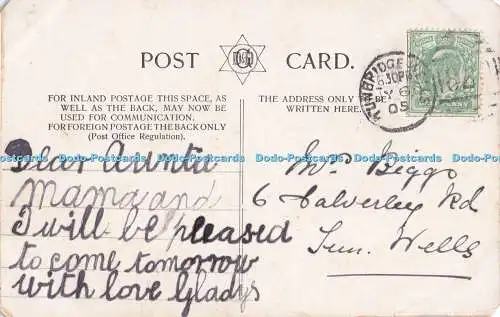 POST CARD.
FOR INLAND POSTAGE THIS SPACE, AS
WELL AS THE BACK, MAY NOW BE
USED FOR COMMUNICATION.
FOR FOREIGN POSTAGE THE BACK ONLY
(Post Office Regulation).
THE ADDRESS ONLY
WRITTEN HERE.
TUNBRIDGE
6.30PM
05
Dodo-Postcards Dodo-Postcards Dodo-Postcards Dodo-Postcards Dodo-Postcards Dodo-Postcards
Dear Auntie
Mama and
I will be pleased
to come tomorrow
with love Gladys
Biggs
6 Calverley Rd
Tun. Wells